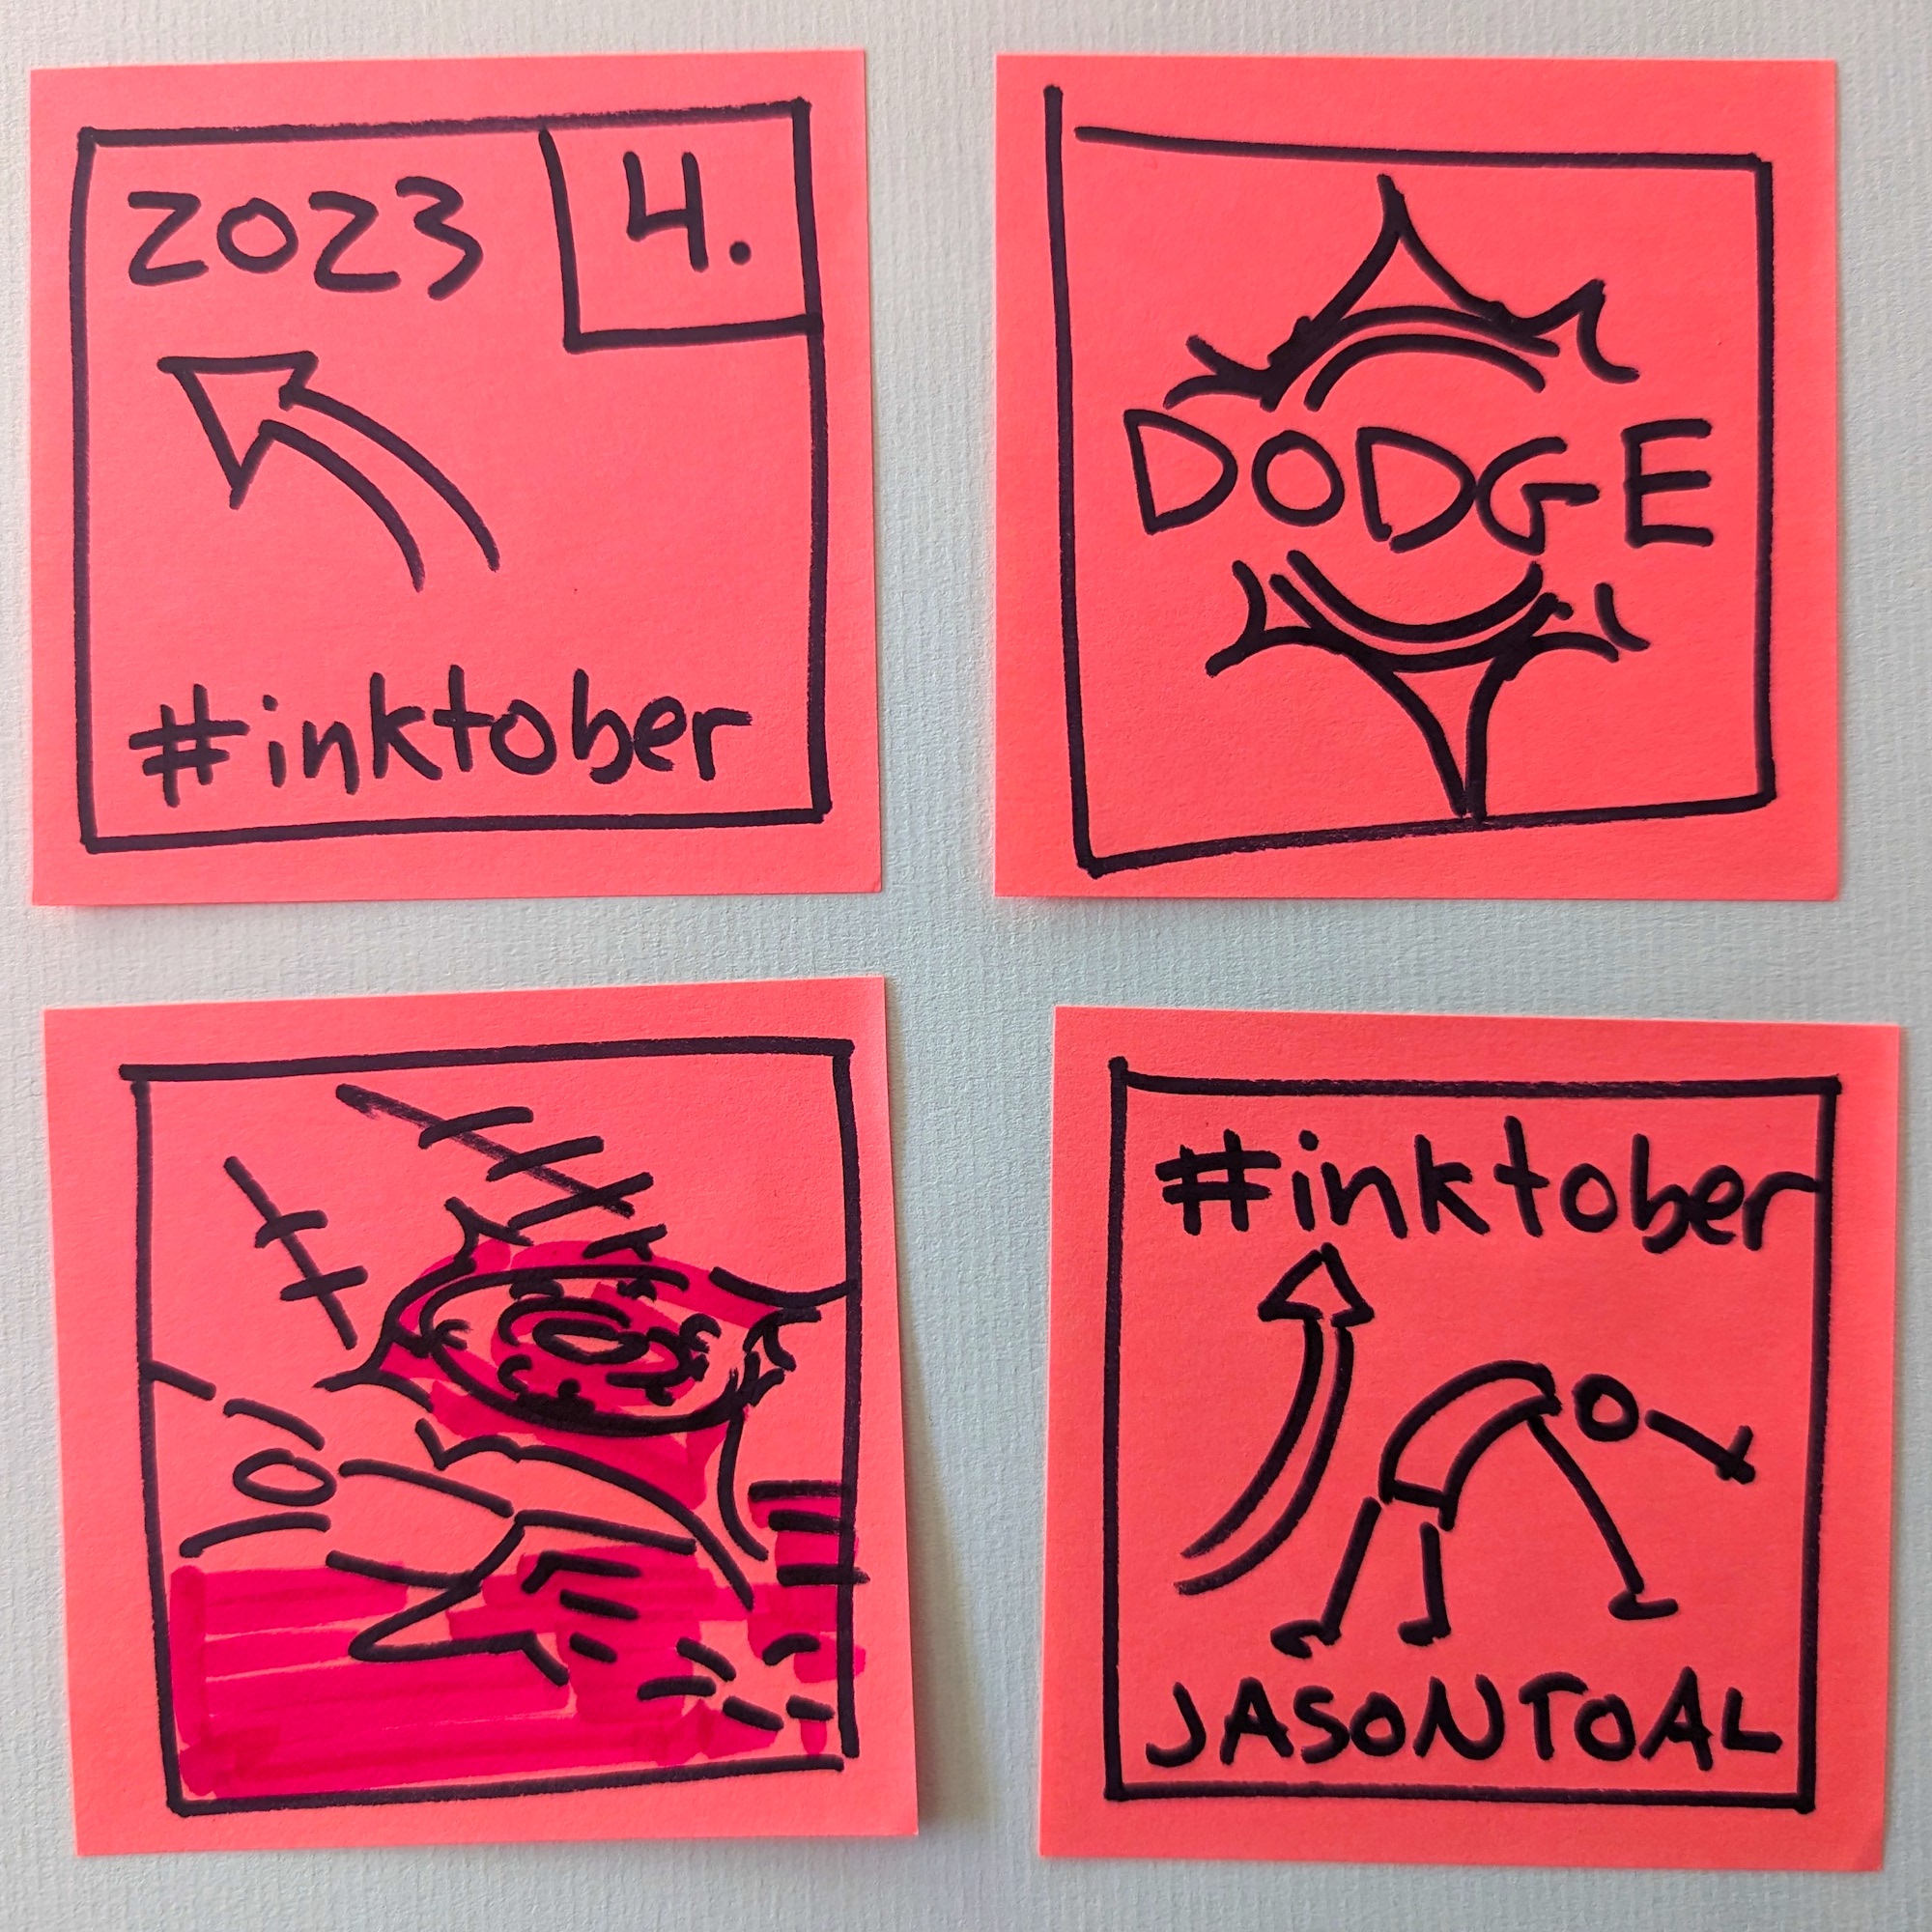 2023 4.
#inktober
DODGE
#inktober
JASONTOAL